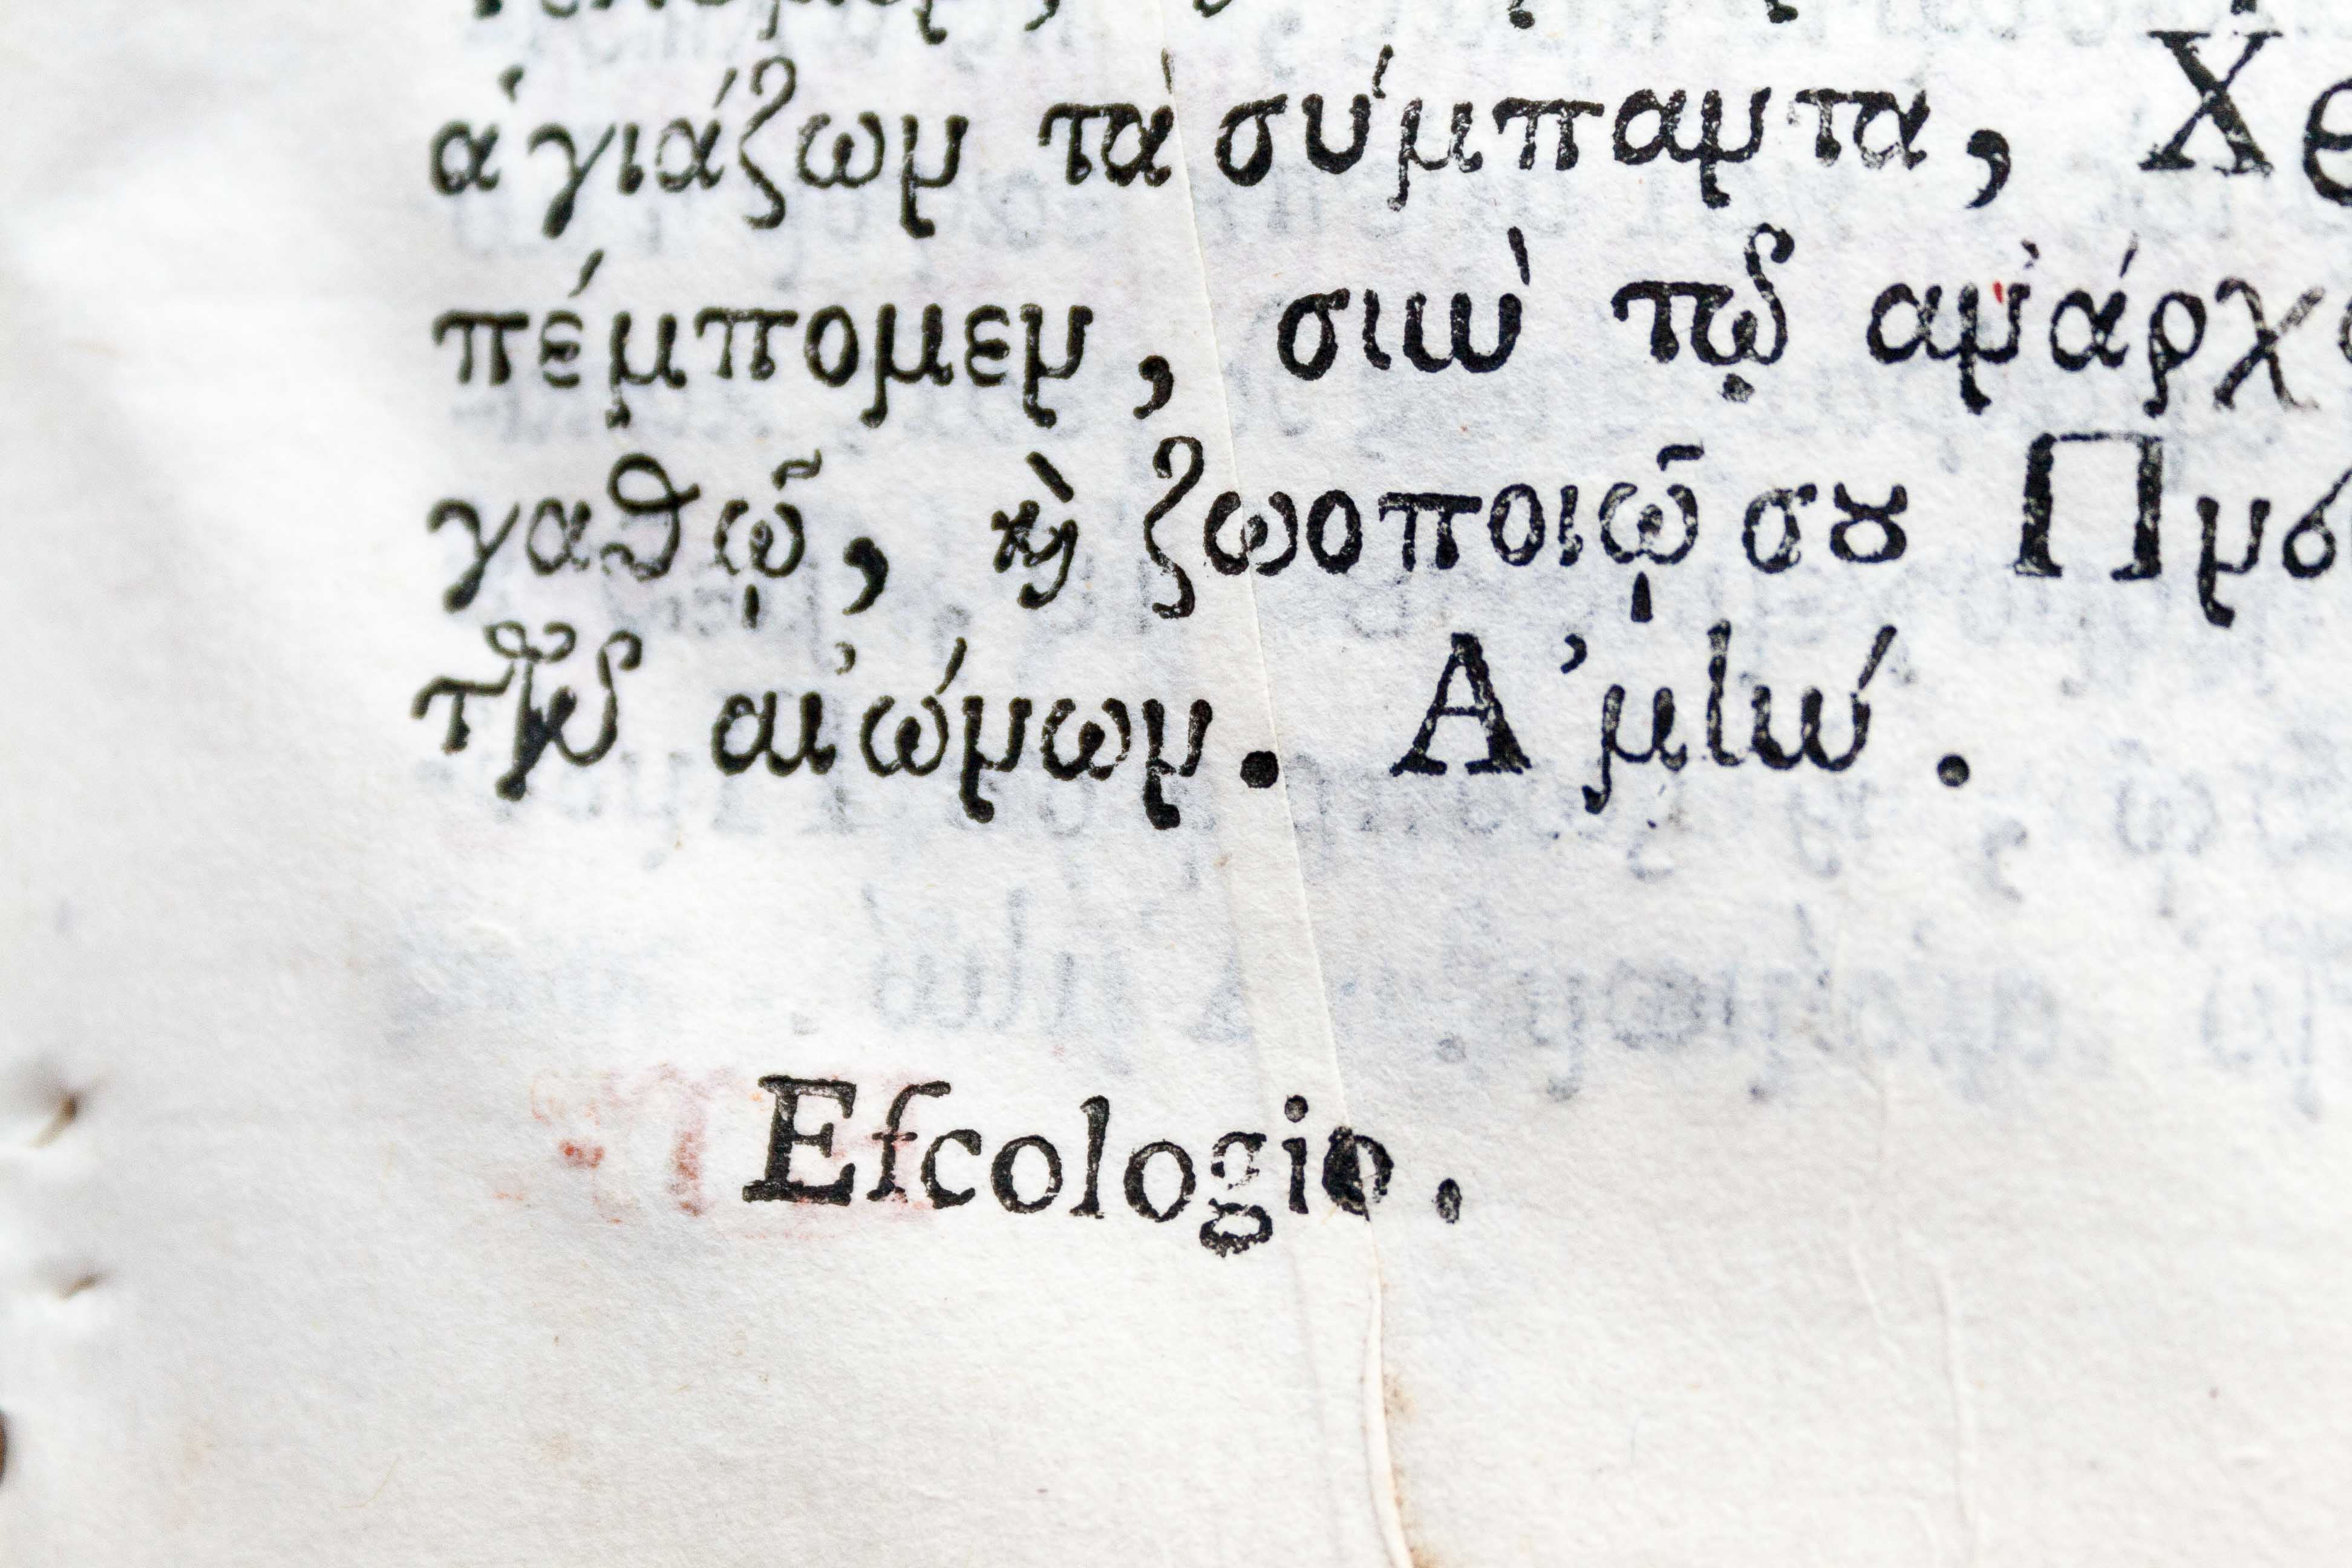 ἁγιάζων τὰ σύμπαντα,
πέμπομεν, σὺν τῷ
γαθῷ, καὶ ζωοποιῷ σου
τῶν αἰώνων. Ἀμήν.
Eſcologio.